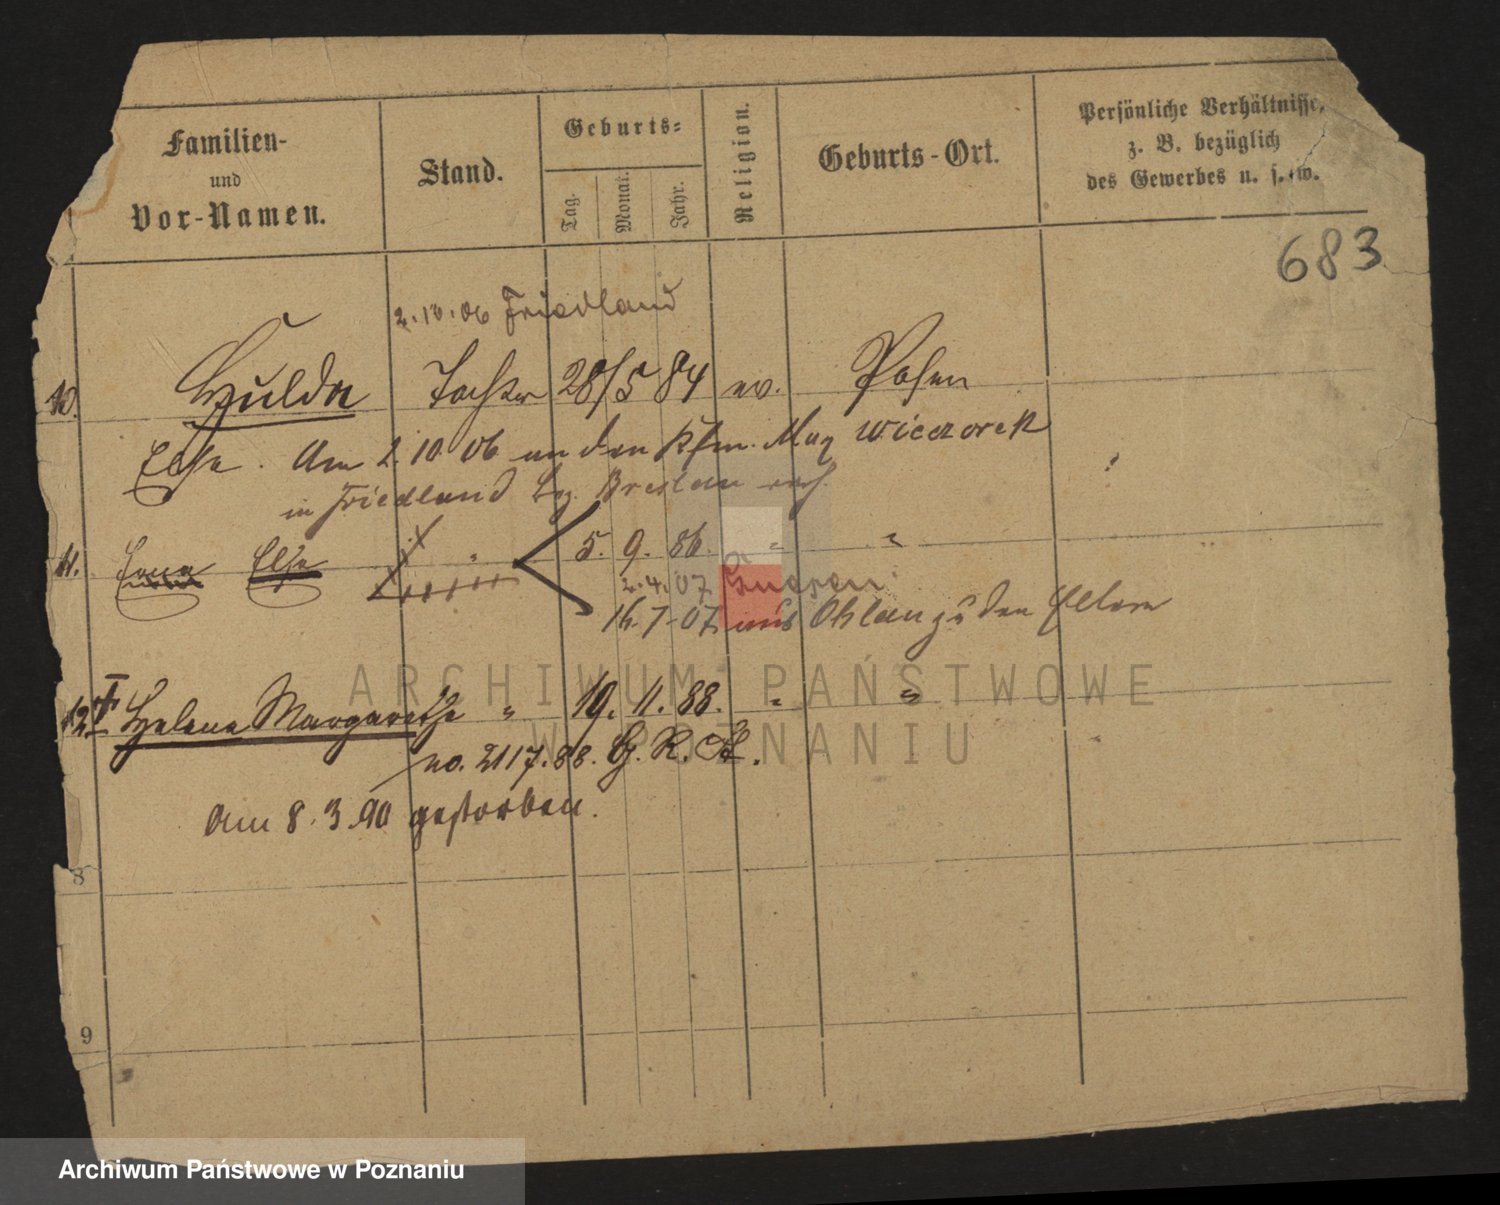 Familien-
und
Vor-Namen.
Stand.
Geburts-
Tag.
Monat.
Jahr.
Religion.
Geburts-Ort.
Persönliche Verhältnisse,
z. B. bezüglich
des Gewerbes u. s. w.
683
2.10.06 Friedland
10. Hulda Tochter 28/5 84 ev. Posen
Else. Am 2.10.06 an den Kfm. Max Wieczorek
in Friedland Bez. Breslau verh.
11. Erna Else " 5. 9. 86. " "
2.4.07 Gnesen
16.7.07 aus Ohlau zu den Eltern
12 † Helene Margarethe " 19. 11. 88. " "
no. 2117.88. G. R. St.
Am 8.3.90 gestorben.
8
9
ARCHIWUM PAŃSTWOWE
W POZNANIU
Archiwum Państwowe w Poznaniu